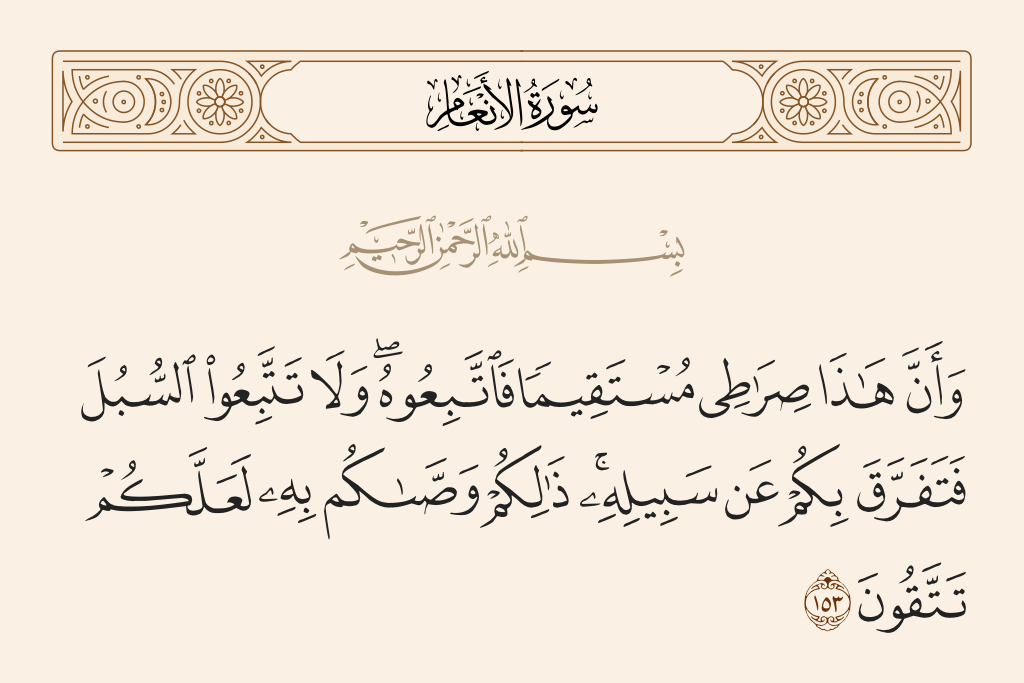 سُورَةُ الأَنْعَامِ
بِسْمِ ٱللَّهِ ٱلرَّحْمَٰنِ ٱلرَّحِيمِ
وَأَنَّ هَٰذَا صِرَٰطِى مُسْتَقِيمًا فَٱتَّبِعُوهُ ۖ وَلَا تَتَّبِعُوا۟ ٱلسُّبُلَ
فَتَفَرَّقَ بِكُمْ عَن سَبِيلِهِۦ ۚ ذَٰلِكُمْ وَصَّىٰكُم بِهِۦ لَعَلَّكُمْ
تَتَّقُونَ ١٥٣